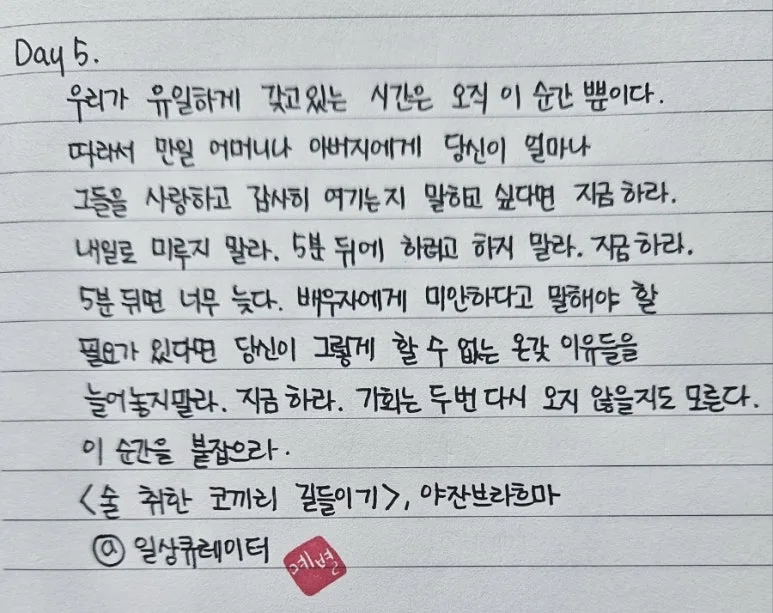 Day 5.
우리가 유일하게 갖고있는 시간은 오직 이 순간 뿐이다.
따라서 만일 어머니나 아버지에게 당신이 얼마나
그들을 사랑하고 감사히 여기는지 말하고 싶다면 지금 하라.
내일로 미루지 말라. 5분 뒤에 하려고 하지 말라. 지금 하라.
5분 뒤면 너무 늦다. 배우자에게 미안하다고 말해야 할
필요가 있다면 당신이 그렇게 할 수 없는 온갖 이유들을
늘어놓지말라. 지금 하라. 기회는 두번 다시 오지 않을지도 모른다.
이 순간을 붙잡으라.
<술 취한 코끼리 길들이기>, 아잔브라흐마
@ 일상큐레이터 예별